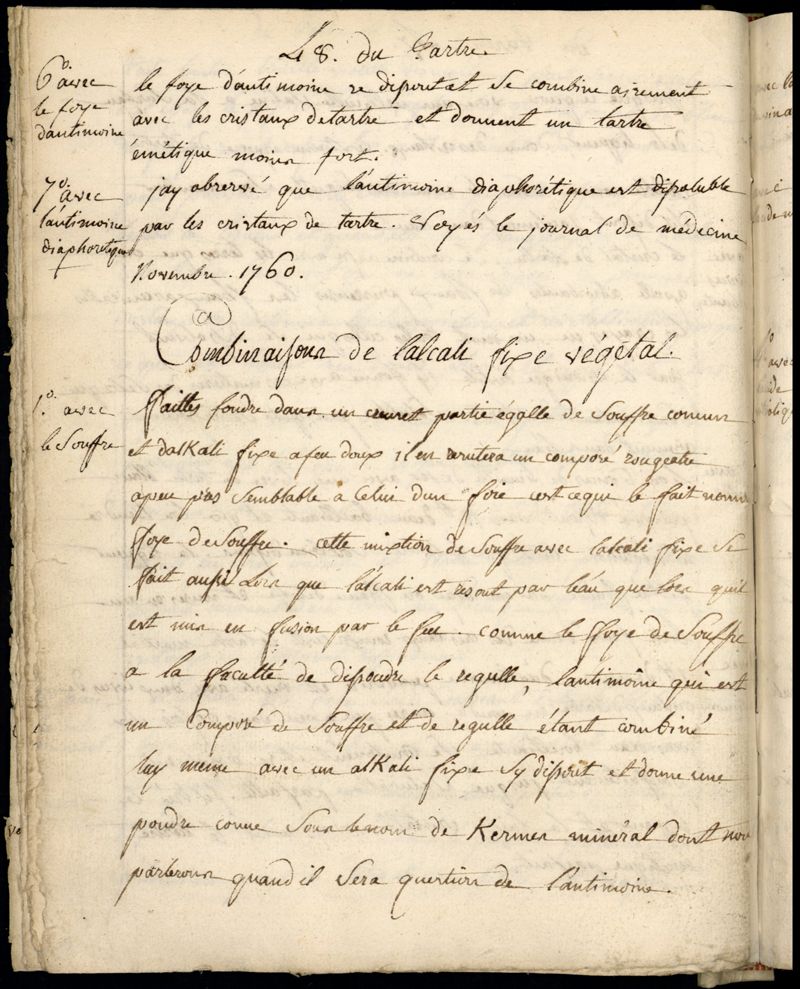 48. du Tartre.
6º. avec
le foye
dantimoine
le foye d'antimoine se dissout et se combine aisement
avec les cristaux de tartre et donnent un tartre
émétique moins fort.
7º. avec
lantimoine
diaphoretique
jay observé que l'antimoine diaphorétique est dissoluble
par les cristaux de tartre. Voyés le journal de médecine
Novembre. 1760.
Combinaisons de lalcali fixe végétal.
1º. avec
le Souffre
faittes fondre dans un creuset partie égalle de Souffre comun
et dalKali fixe a feu doux il en resultera un composé rougeatre
apeu prés Semblable a Celui dun foie cest ce qui le fait nommer
foye de Souffre. cette mixtion de Souffre avec lalcali fixe Se
fait aussi Lors que l'alcali est resout par leau que lors quil
est mis en fusion par le feu. comme le foye de Souffre
a la faculté de dissoudre le regulle, lantimoine qui est
un Composé de Souffre et de regulle étant combiné
luy meme avec un alKali fixe Sy dissout et donne une
poudre conue Sous le nom de Kermes minéral dont nous
parlerons quand il Sera question de l'antimoine.